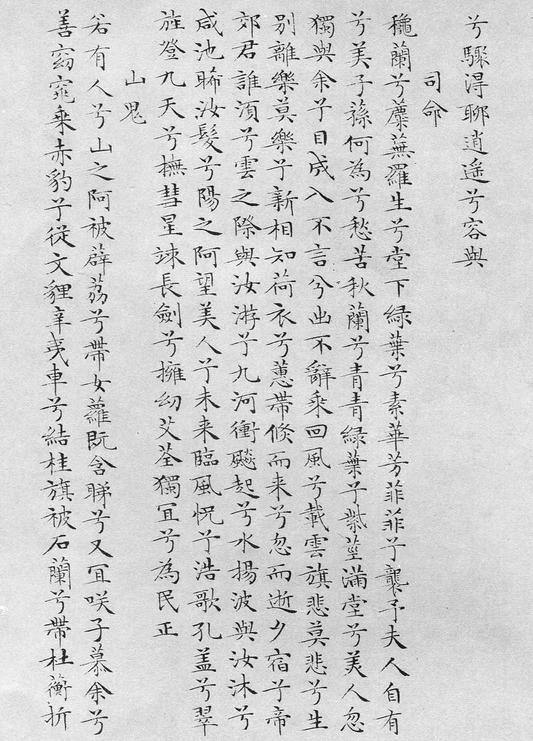 兮驟得聊逍遥兮容與
司命
穐蘭兮蘪蕪羅生兮堂下緑葉兮素華芳菲菲兮襲予夫人自有
兮美子蓀何為兮愁苦秋蘭兮青青緑葉兮紫莖滿堂兮美人忽
獨與余兮目成入不言兮出不辭乘回風兮載雲旗悲莫悲兮生
別離樂莫樂兮新相知荷衣兮蕙帶倐而来兮忽而逝夕宿兮帝
郊君誰湏兮雲之際與汝游兮九河衝飈起兮水揚波與汝沐兮
咸池晞汝髮兮陽之阿望美人兮未来臨風怳兮浩歌孔蓋兮翠
旌登九天兮撫彗星竦長劍兮擁幼艾荃獨冝兮為民正
山鬼
若有人兮山之阿被薜茘兮帶女蘿既含睇兮又冝咲子慕余兮
善窈窕乗赤豹兮從文貍辛夷車兮結桂旗被石蘭兮帶杜蘅折